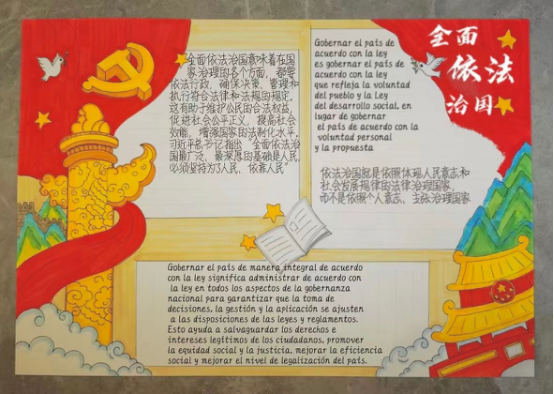 全面
依法
治国
全面依法治国意味着在国
家治理的各个方面，都要
依法行政，确保决策、管理和
执行符合法律和法规的规定。
这有助于维护公民的合法权益，
促进社会公平正义，提高社会
效能，增强国家的法制化水平。
习近平总书记指出“全面依法治
国最广泛、最深厚的基础是人民，
必须坚持为了人民、依靠人民”
Gobernar el país de
acuerdo con la ley
es gobernar el país de
acuerdo con la ley
que refleja la voluntad
del pueblo y la Ley
del desarrollo social, en
lugar de gobernar
el país de acuerdo con la
voluntad personal
y la propuesta
依法治国就是依照体现人民意志和
社会发展规律的法律治理国家，
而不是依照个人意志、主张治理国家
Gobernar el país de manera integral de acuerdo
con la ley significa administrar de acuerdo con
la ley en todos los aspectos de la gobernanza
nacional para garantizar que la toma de
decisiones, la gestión y la aplicación se ajusten
a las disposiciones de las leyes y reglamentos.
Esto ayuda a salvaguardar los derechos e
intereses legítimos de los ciudadanos, promover
la equidad social y la justicia, mejorar la eficiencia
social y mejorar el nivel de legalización del país.